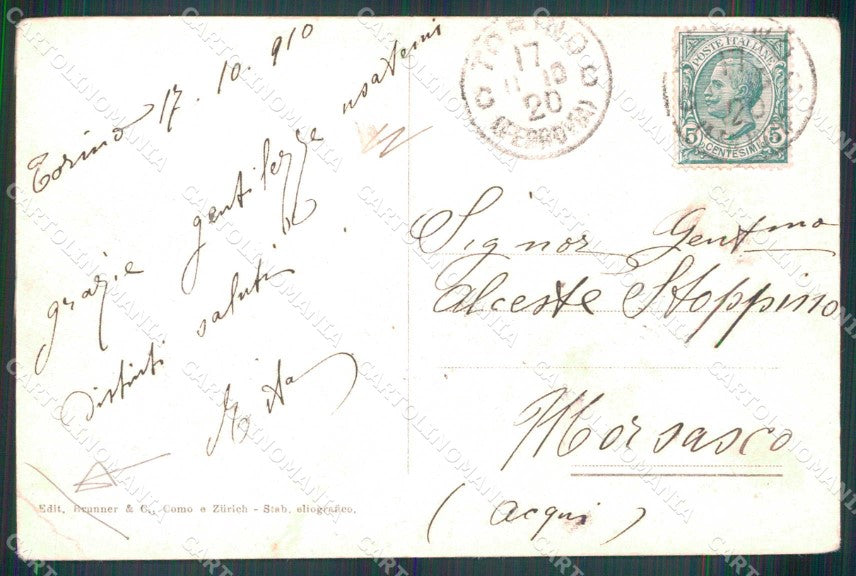 Torino 17. 10. 910
grazie gentilezze usatemi
distinti saluti.
Signor Gentmo
Alceste Stoppino
Morsasco
(acqui)
TORINO
17
10
20
(FERROVIA)
POSTE ITALIANE
5 CENTESIMI 5
Edit. Brunner & C., Como e Zürich - Stab. eliografico.
CARTOLINOMANIA